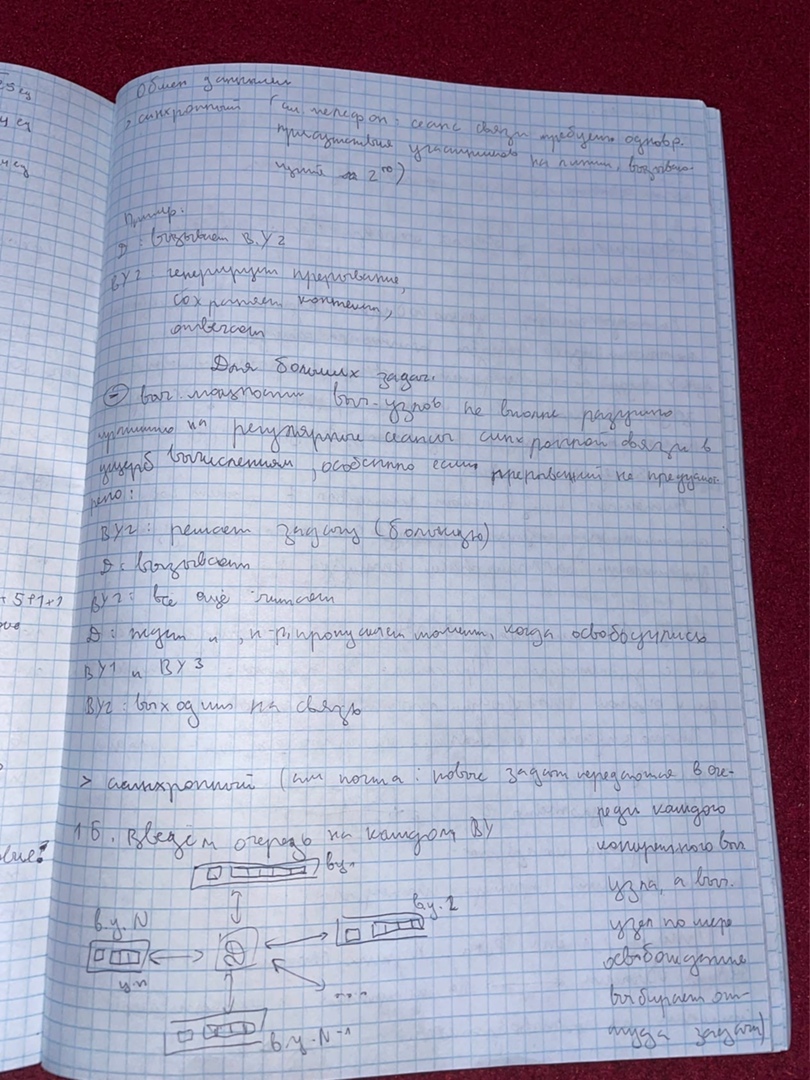 Обмен данными
> синхронный (ан. телефон: сеанс связи требует одновр.
присутствия участников на линии, вызываю-
щий 2го)
Пример:
D: вызывает В.У2
ВУ2 генерирует прерывание,
сохраняет контекст,
отвечает
Для больших задач:
⊖ выч. мощности выч-узлов не вполне разумно
на регулярные сеансы синхронной связи в
ущерб вычислениям, особенно если прерываний не предусмот-
рено:
ВУ2: решает задачу (большую)
D: вызывает
ВУ2: все ещё считает
D: ждет и, н-р, пропускает момент, когда освободились
ВУ1 и ВУ3
ВУ2: выходит на связь
> асинхронный (ан почта: новые задачи передаются в оче-
реди каждого
конкретного выч.
узла, а выч.
узел по мере
освобождения
выбирает от-
туда задачи)
1Б. Введём очередь на каждом ВУ
ву1
в.у.N
D
ву.2
...
в.у.N-1
+ 5+1+1